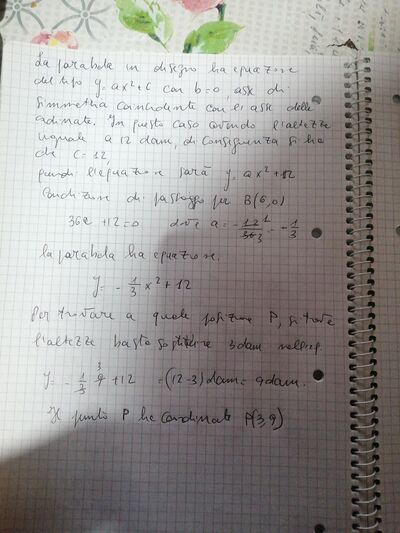 La parabola in disegno ha equazione
del tipo y = ax² + c con b=0 asse di
simmetria coincidente con l'asse delle
ordinate. In questo caso avendo l'altezza
uguale a 12 dam, di conseguenza si ha
che c = 12,
quindi l'equazione sarà y = ax² + 12
Condizione di passaggio per B(6,0)
36a + 12 = 0 dove a = - 12/36 = - 1/3
la parabola ha equazione.
y = - 1/3 x² + 12
Per trovare a quale posizione P, si trova
l'altezza basta sostituire 3 dam nell'eq.
y = - 1/3 9 + 12 = (12-3) dam = 9 dam.
Il punto P ha coordinate P(3,9)